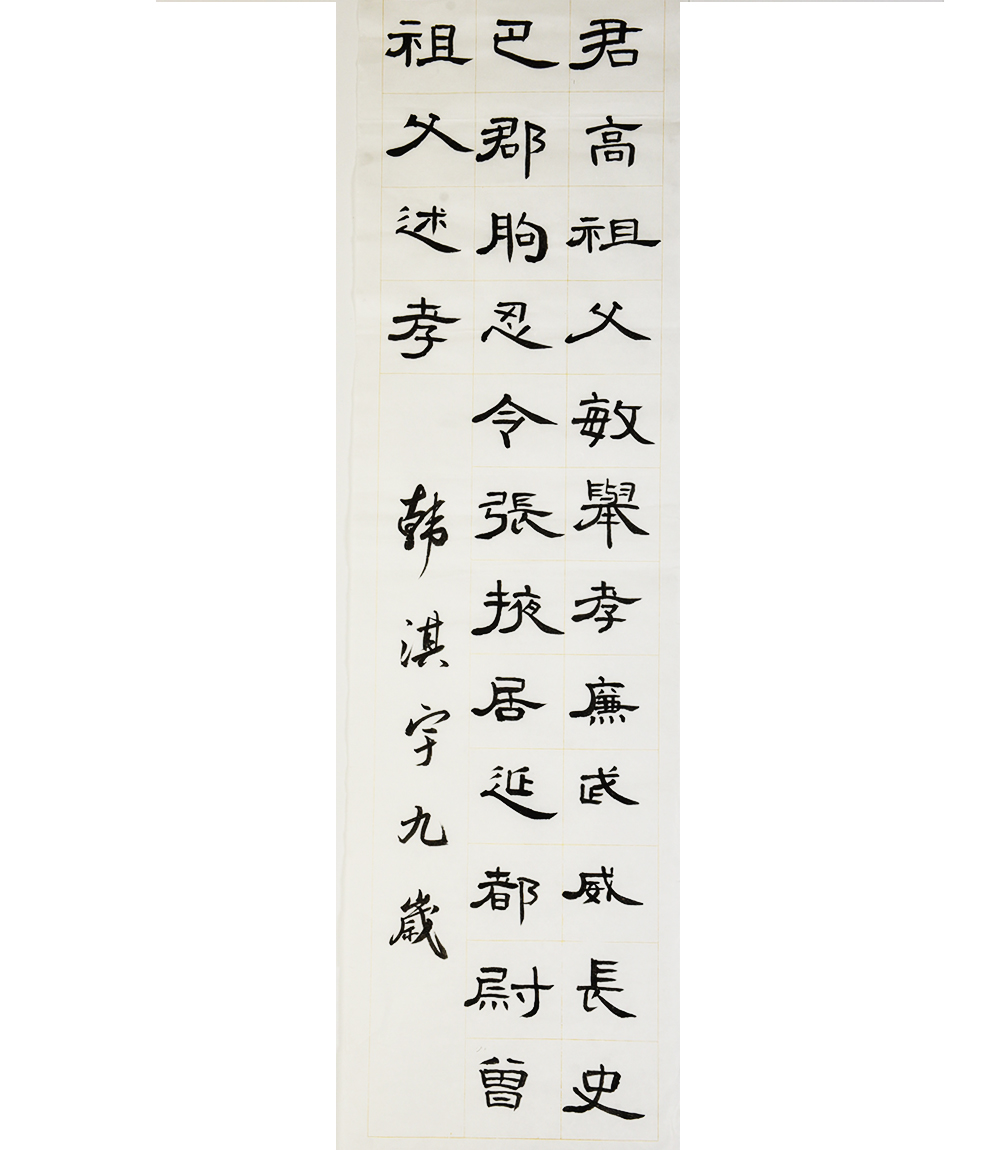 君高祖父敏舉孝廉武威長史
巴郡朐忍令張掖居延都尉曾
祖父述孝
韩淇宇九歲